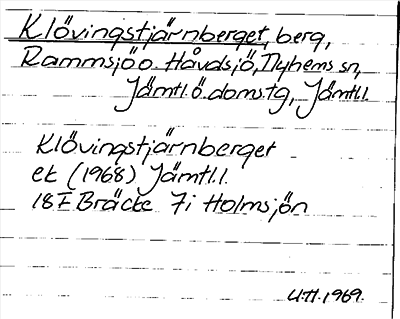 Klövingstjärnberget, berg,
Rammsjö o. Håvdsjö, Nyhems sn,
Jämtl. ö. doms.tg, Jämtl.l.
Klövingstjärnberget
ek (1968) Jämtl.l.
18F Bräcke 7i Holmsjön
U.H. 1969.